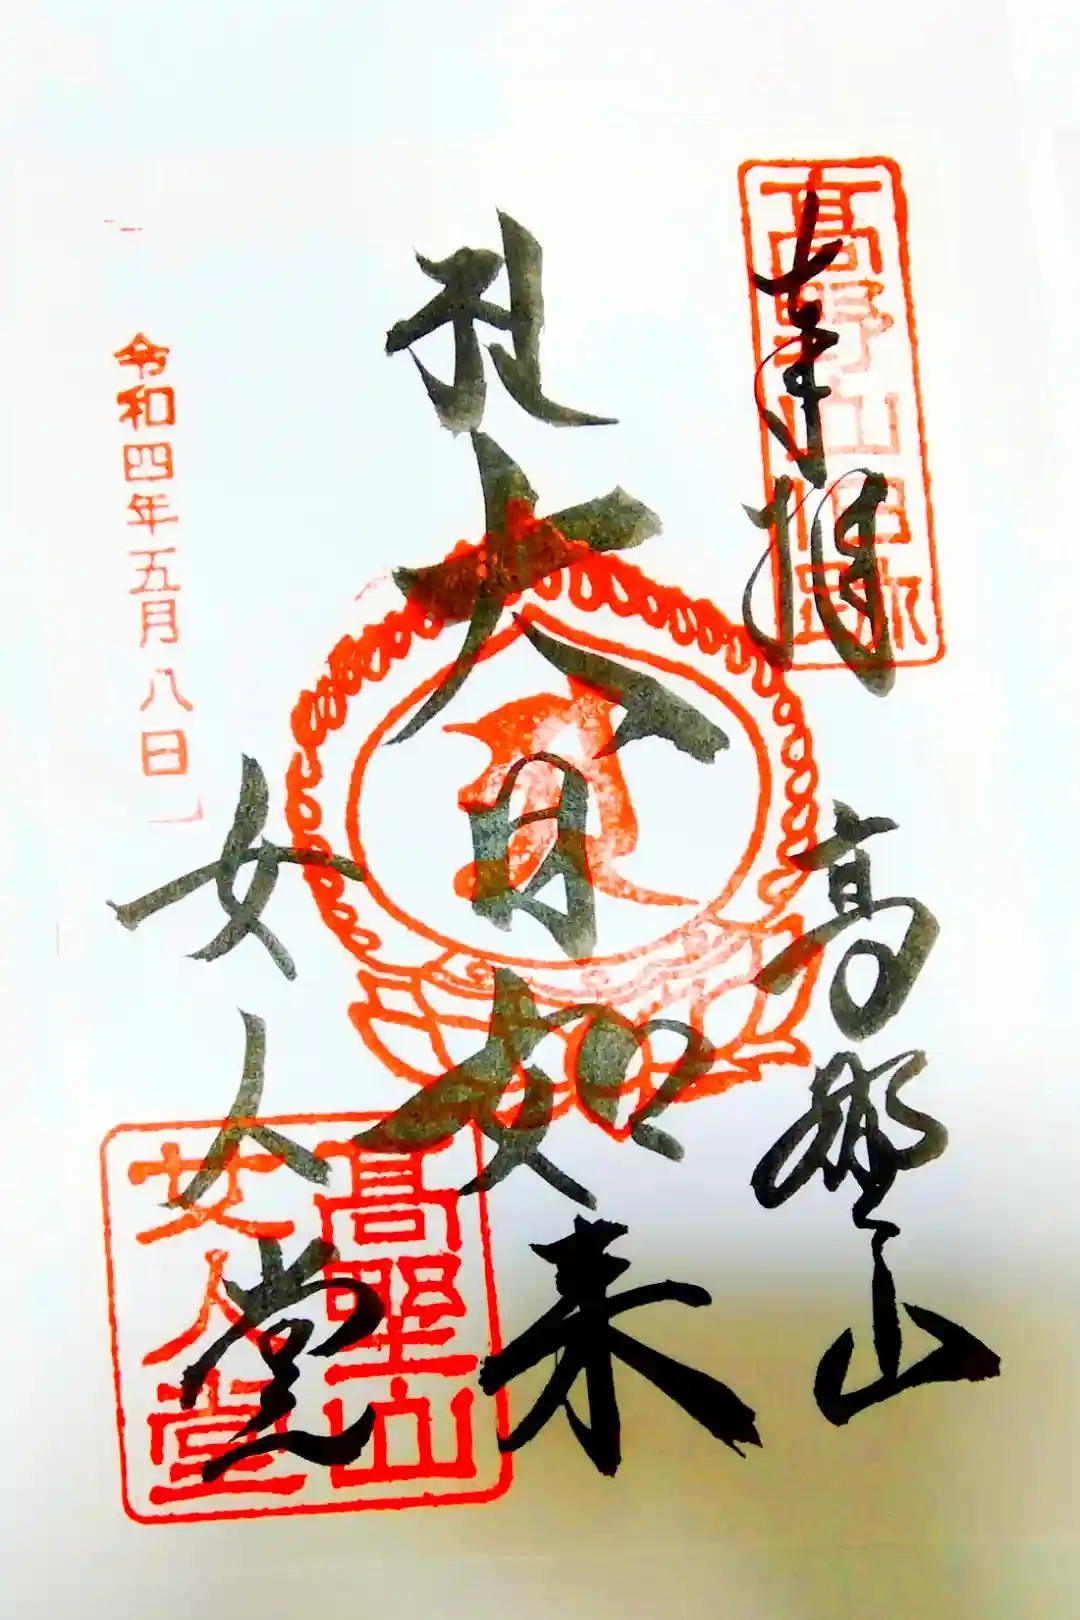 奉拝
高野山
高野山旧跡
礼大日如来
女人堂
高野山
女人堂
令和四年五月八日